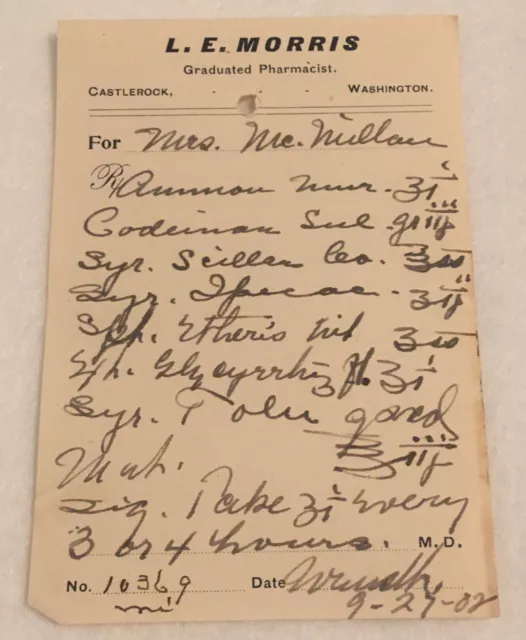 L. E. MORRIS
Graduated Pharmacist.
CASTLEROCK, - - - WASHINGTON.
For Mrs. McMillan
℞ Ammon Mur. ʒi
Codeinae Sul. gr iij
Syr. Scillae Co. ℥ss
Syr. Ipecac. ʒij
Sp. Etheris Nit ℥ss
Ex. Glycyrrhiz fl. ʒi
Syr. Tolu q ad
℥iij
M ft.
Sig. Take ʒi every
3 or 4 hours. M. D.
No. 10369 Date
9-27-02